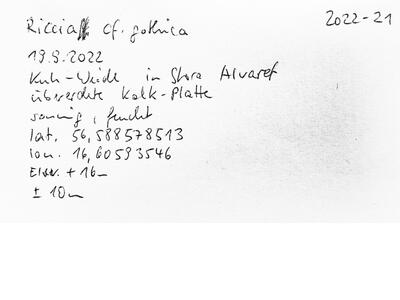 Riccia cf. gothica
2022-21
19.9.2022
Kuh-Weide in Stora Alvaret
übererdete Kalk-Platte
sonnig, feucht
lat. 56,588578513
lon. 16,60593546
Elev. + 16m
± 10m